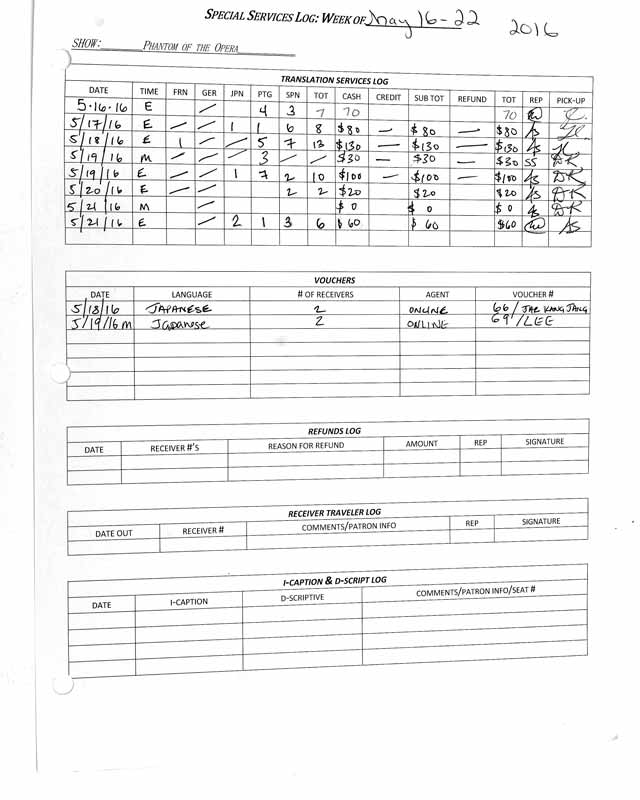 SPECIAL SERVICES LOG: WEEK OF May 16-22 2016
SHOW: PHANTOM OF THE OPERA
TRANSLATION SERVICES LOG
DATE TIME FRN GER JPN PTG SPN TOT CASH CREDIT SUB TOT REFUND TOT REP PICK-UP
5.16.16 E / 4 3 7 70 70
5/17/16 E — / 1 1 6 8 $80 — $80 — $80 AS
5/18/16 E 1 — / 5 7 13 $130 — $130 — $130 AS
5/19/16 M — / — 3 / — $30 — $30 — $30 SS DR
5/19/16 E — / 1 7 2 10 $100 — $100 — $100 AS DR
5/20/16 E — / 2 2 $20 $20 $20 AS DR
5/21/16 M / $0 $0 $0 AS DR
5/21/16 E / 2 1 3 6 $60 $60 $60 AS
VOUCHERS
DATE LANGUAGE # OF RECEIVERS AGENT VOUCHER #
5/18/16 JAPANESE 2 ONLINE 66/JAE KANG JANG
5/19/16 M Japanese 2 ONLINE 69/LEE
REFUNDS LOG
DATE RECEIVER #'S REASON FOR REFUND AMOUNT REP SIGNATURE
RECEIVER TRAVELER LOG
DATE OUT RECEIVER # COMMENTS/PATRON INFO REP SIGNATURE
I-CAPTION & D-SCRIPT LOG
DATE I-CAPTION D-SCRIPTIVE COMMENTS/PATRON INFO/SEAT #